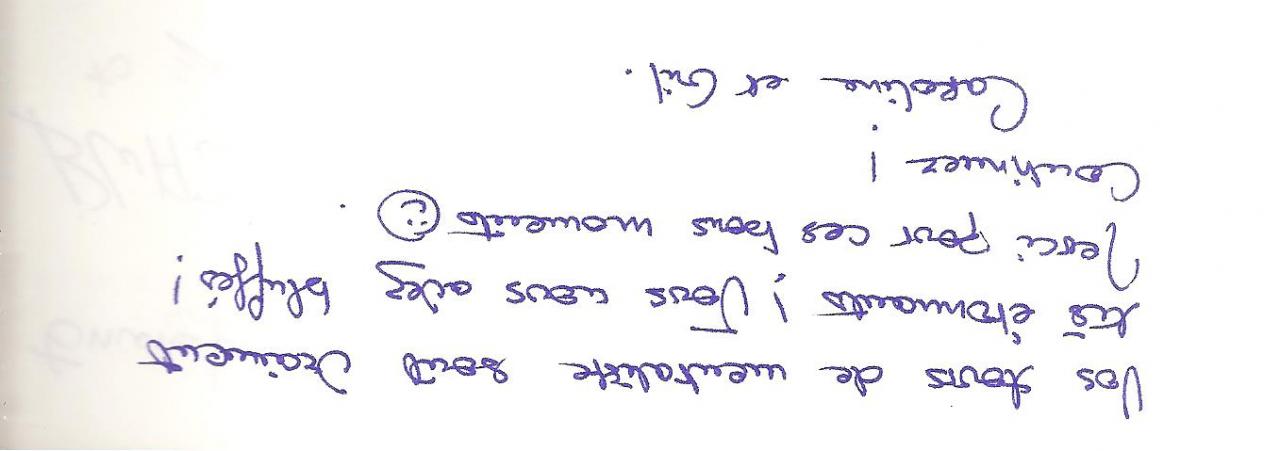 Vos tours de mentaliste sont vraiment
très étonnants ! Vous nous avez bluffés !
Merci pour ces bons moments ☺.
Continuez !
Caroline et Gil.